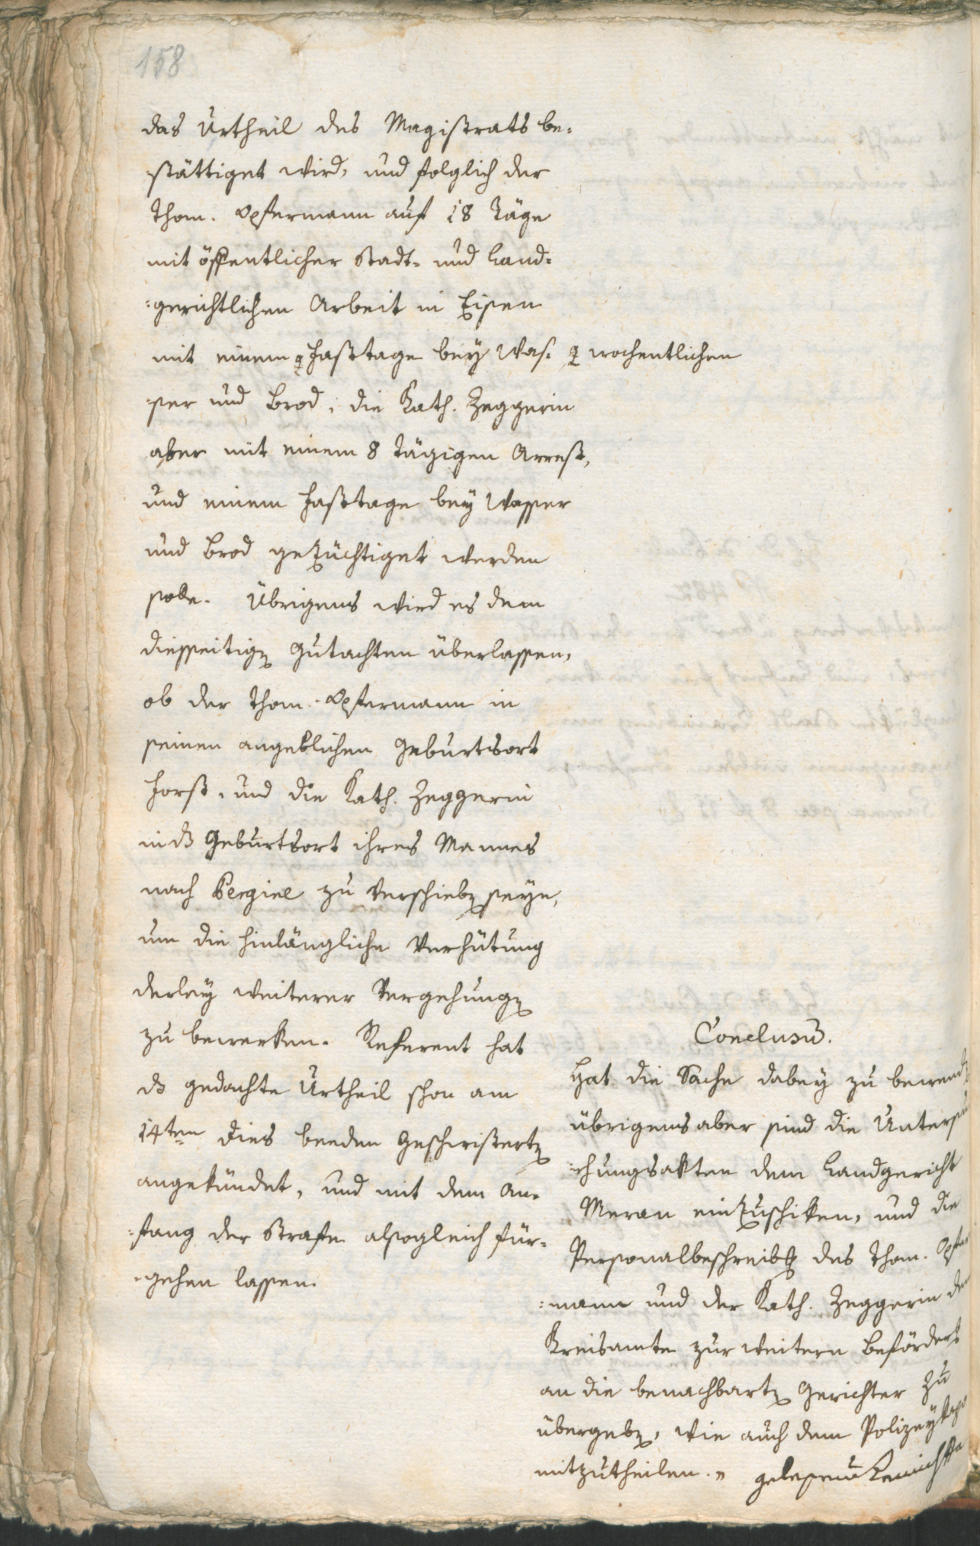 158
das Urtheil des Magistrats be-
stättiget wird, und folglich der
Thom. Opfermann auf 18 Täge
mit öffentlicher Stadt- und Land-
:gerichtlichen Arbeit in Eisen
mit einem Fasttage bey Was- wochentlichen
ser und Brod, die Kath. Zeggerin
aber mit einem 8 tägigen Arrest,
und einem Fasttage bey Wasser
und Brod gezüchtiget werden
solle. Übrigens wird es dem
diesseitigen Gutachten überlassen,
ob der Thom. Opfermann in
seinen angeblichen Geburtsort
Horst, und die Kath. Zeggerin
in das Geburtsort ihres Mannes
nach Pergine zu verschieben seye,
um die hinlängliche Verhütung
derley weiterer Vergehungen
zu bewerken. Referent hat
das gedachte Urtheil schon am
14ten dies beeden Geschwisterten
angekündet, und mit dem An-
:fang der Strafe alsogleich für-
:gehen lassen.
Conclusum.
Hat die Sache dabey zu bewenden
übrigens aber sind die Untersu
:chungsakten dem Landgericht
Meran einzuschiken, und die
Personalbeschreibung des Thom. Opfer
:mann und der Kath. Zeggerin dem
Kreisamte zur weitern Beförderung
an die benachbarten Gerichter zu
übergeben, wie auch dem Polizey
mitzutheilen. gelesen